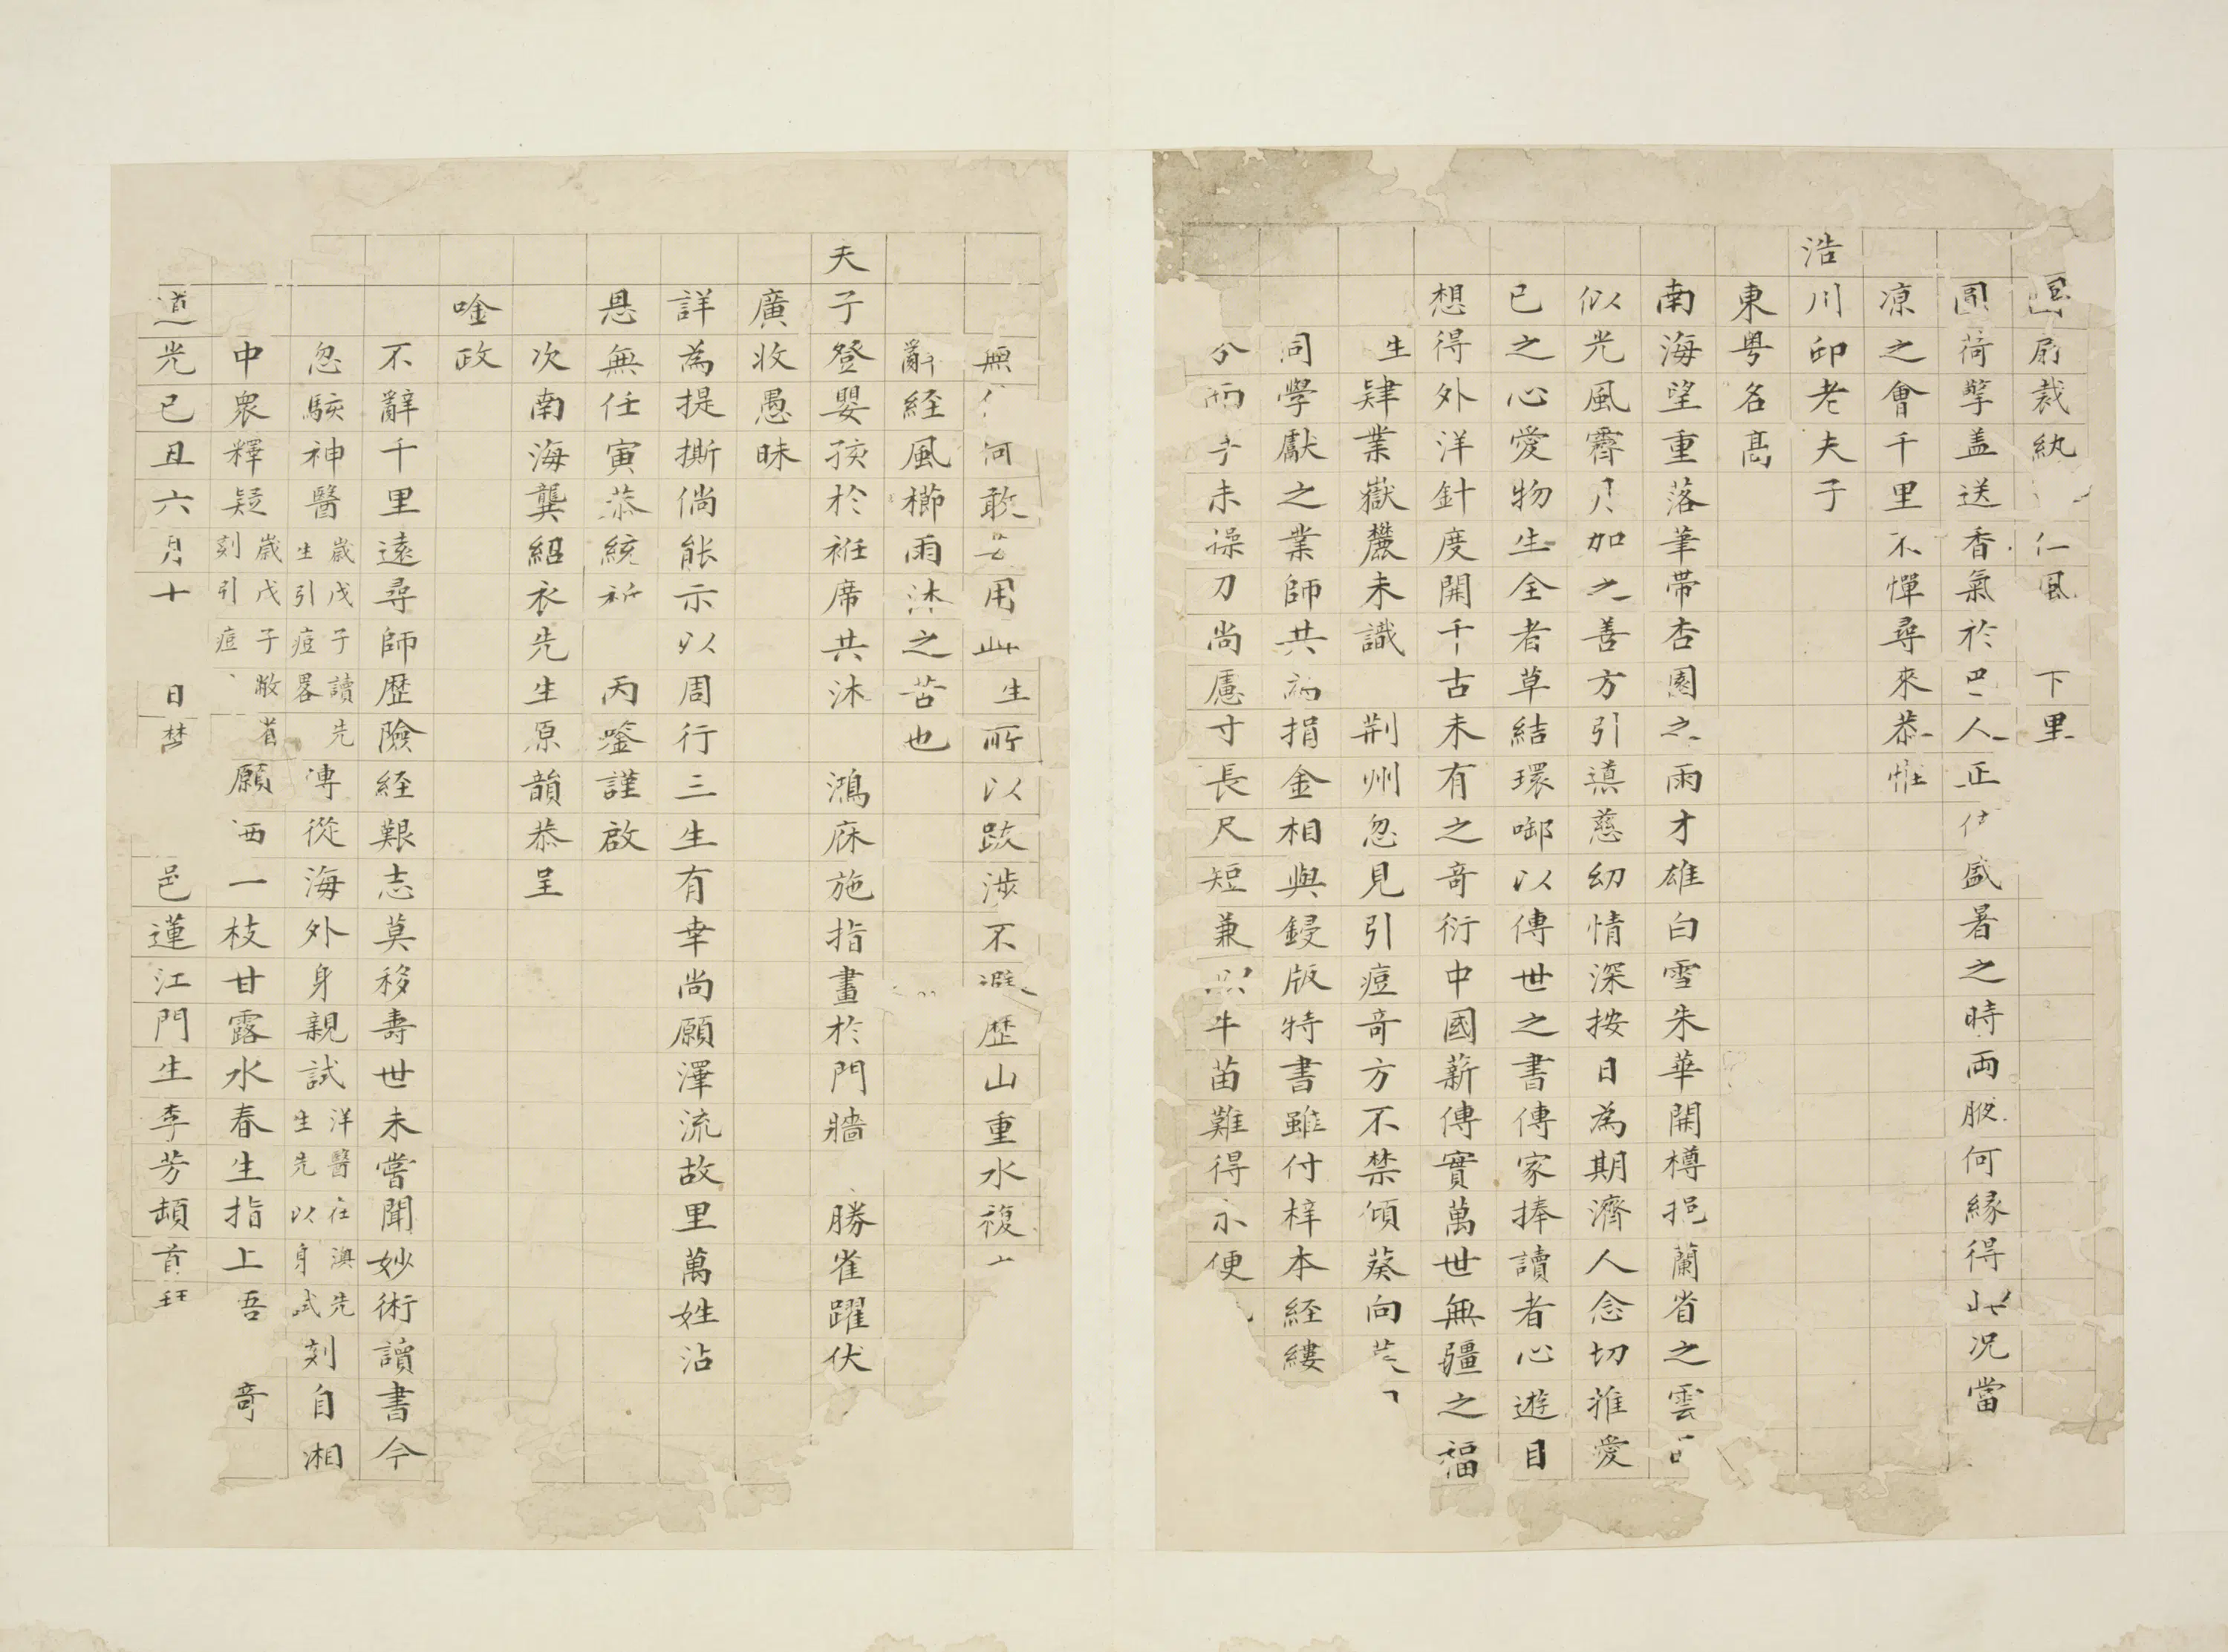 扇裁紈仁風下里
圓荷擎盖送香氣於巴人正盛暑之時両腋何緣得此况當
凉之會千里不憚尋來恭惟
浩川邱老夫子
東粤名髙
南海望重落筆帶杏園之雨才雄白雪朱華開樽挹蘭省之雲
似光風霽月加之善方引蓺慈幼情深按日為期濟人念切推愛
已之心愛物生全者草結環啣以傳世之書傳家捧讀者心遊目
想得外洋針度開千古未有之竒衍中國薪傳實萬世無疆之福
生肄業嶽麓未識荆州忽見引痘竒方不禁傾葵向
同學獻之業師共捐金相與鋟版特書雖付梓本経縷
分而未操刀尚慮寸長尺短兼牛苗難得亦便
無何敢用此生所以跋涉不避歴山重水複
辭経風櫛雨沐之苦也
夫子登嬰孩於袵席共沐鴻庥施指畫於門牆勝雀躍伏
廣收愚昧
詳為提撕倘能示以周行三生有幸尚願澤流故里萬姓沾
恩無任寅恭統祈丙鑒謹啟
次南海龔紹衣先生原韻恭呈
唫政
不辭千里遠尋師歴險経艱志莫移壽世未嘗聞妙術讀書今
忽駭神醫歲戊子讀先生引痘畧傳從海外身親試洋醫在澳先生先以身試刻自湘
中衆釋疑歲戊子敝省刻引痘願洒一枝甘露水春生指上吾竒
道光己丑六月十日楚邑蓮江門生李芳頓首